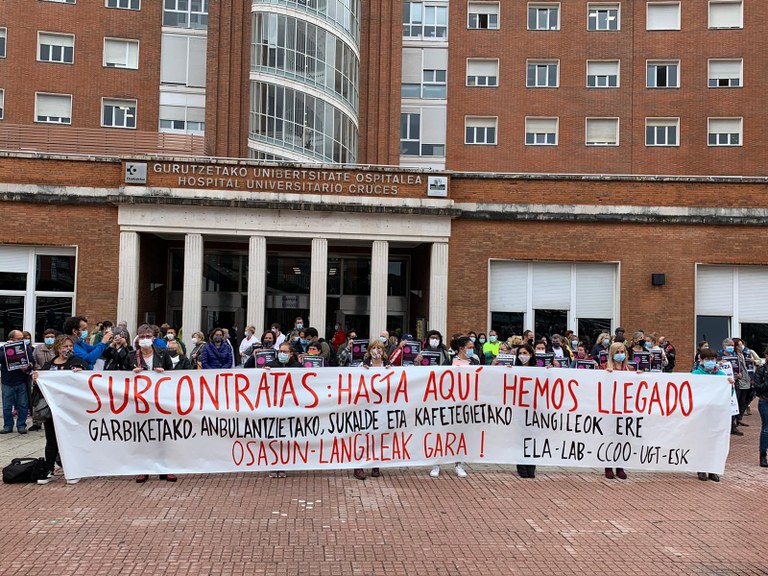 GURUTZETAKO UNIBERTSITATE OSPITALEA
HOSPITAL UNIVERSITARIO CRUCES
SUBCONTRATAS: HASTA AQUÍ HEMOS LLEGADO
GARBIKETAKO, ANBULANTZIETAKO, SUKALDE ETA KAFETEGIETAKO LANGILEOK ERE
OSASUN-LANGILEAK GARA! ELA-LAB-CCOO-UGT-ESK